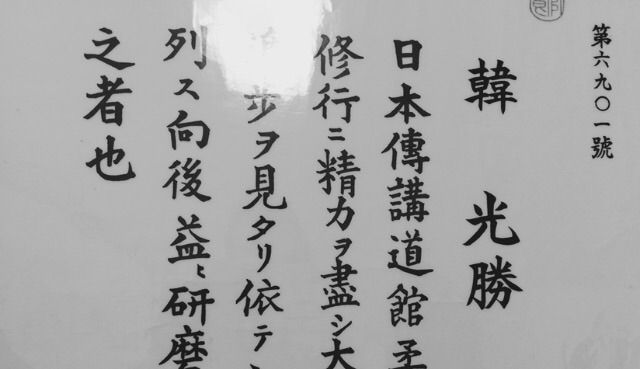 第六九〇一號
韓 光勝
日本傳講道館柔
修行ニ精力ヲ盡シ大
歩ヲ見タリ依テ
列ス向後益〻研磨
之者也